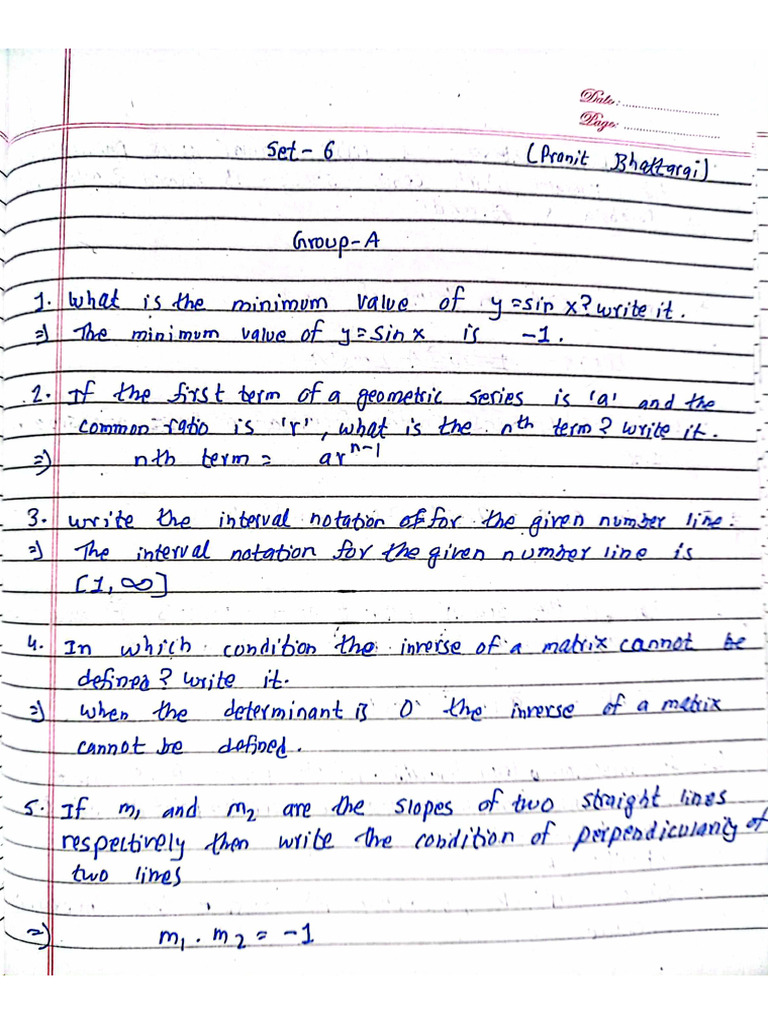 Date: ..........................
Page: ..........................
Set - 6 (Pronit Bhattarai)
Group-A
1. What is the minimum value of y = sin x? write it.
⇒) The minimum value of y = sin x is -1.
2. If the first term of a geometric series is 'a' and the
common ratio is 'r', what is the nth term? write it.
⇒) nth term = ar^n-1
3. write the interval notation of for the given number line.
⇒) The interval notation for the given number line is
[1, ∞]
4. In which condition the inverse of a matrix cannot be
defined? write it.
⇒) when the determinant is 0 the inverse of a matrix
cannot be defined.
5. If m₁ and m₂ are the slopes of two straight lines
respectively then write the condition of perpendicularity of
two lines
⇒) m₁ . m₂ = -1